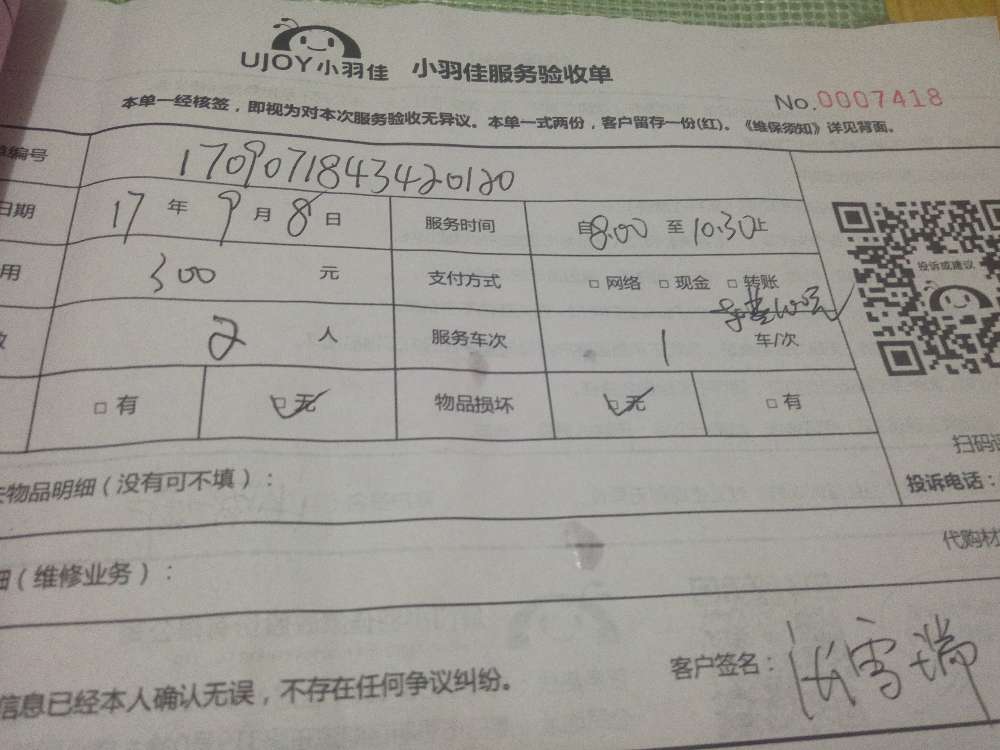 UJOY小羽佳 小羽佳服务验收单
No.0007418
本单一经核签，即视为对本次服务验收无异议。本单一式两份，客户留存一份(红)。《维保须知》详见背面。
编号 1709071843420120
日期 17 年 9 月 8 日 服务时间 自8:00 至10:30止
投诉或建议
用 300 元 支付方式 □ 网络 □ 现金 □ 转账
2 人 服务车次 1 车/次
□ 有 □ 无 物品损坏 □ 无 □ 有
扫码
物品明细（没有可不填）：
投诉电话：
代购材
（维修业务）：
信息已经本人确认无误，不存在任何争议纠纷。
客户签名：张雪瑞